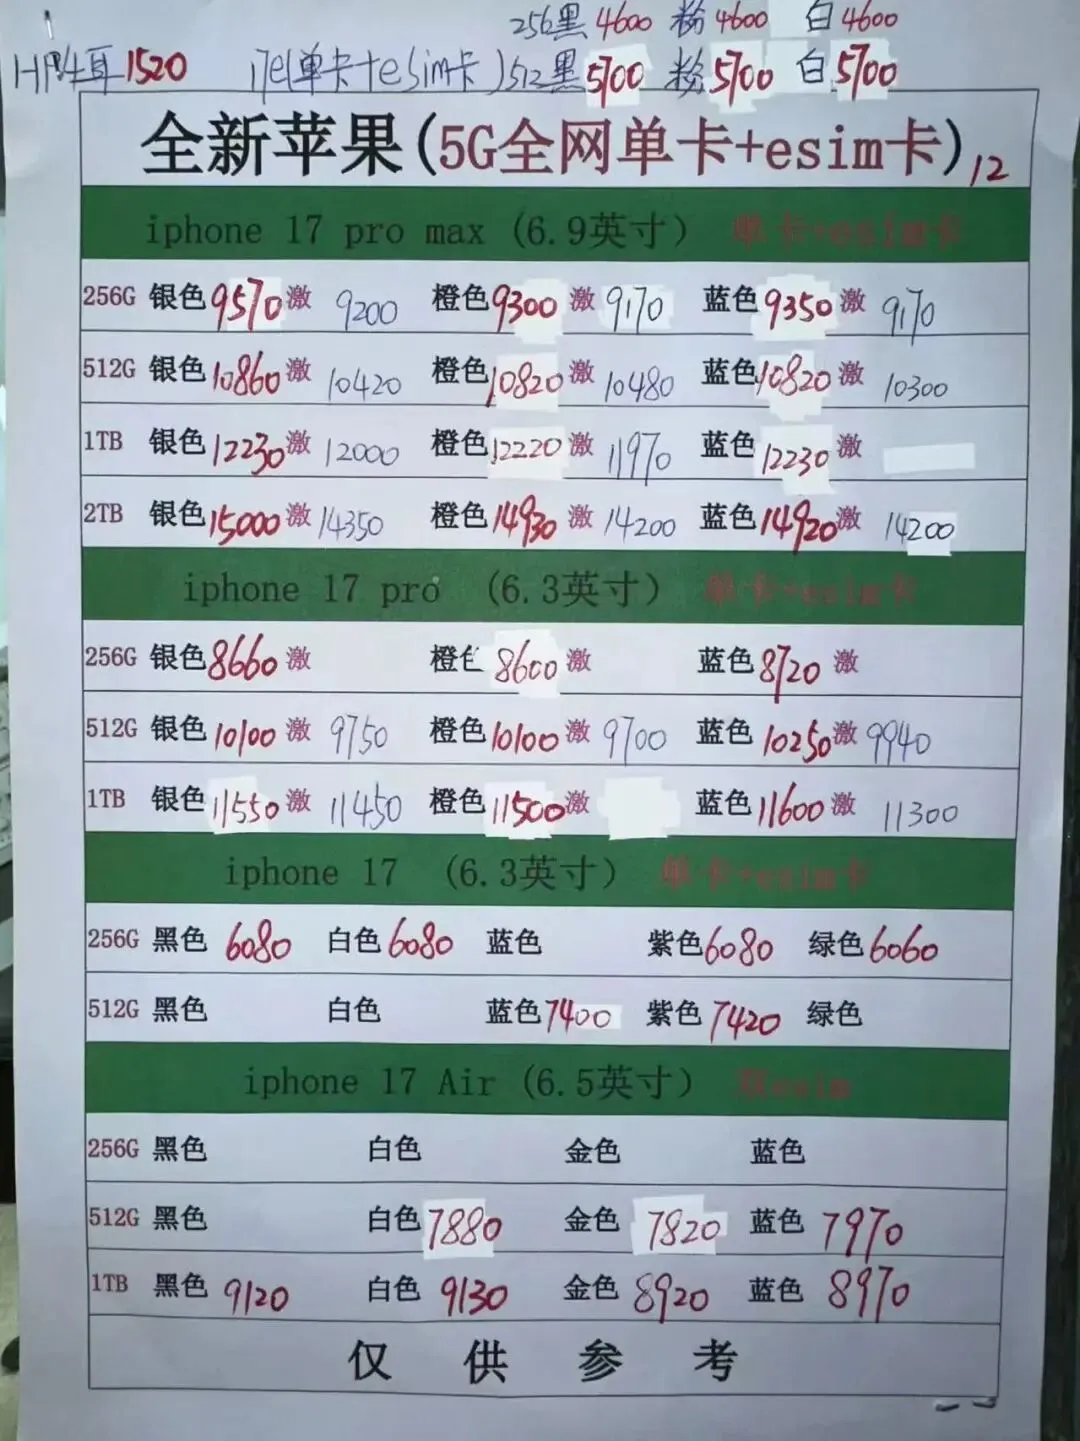 256黑4600 粉4600 白4600
耳1520 17e(单卡+esim卡)512黑5700 粉5700 白5700
全新苹果(5G全网单卡+esim卡)12
iphone 17 pro max (6.9英寸) 单卡+esim卡
256G 银色9570激 9200 橙色9300激 9170 蓝色9350激 9170
512G 银色10860激 10420 橙色10820激 10480 蓝色10820激 10300
1TB 银色12230激 12000 橙色12220激 11970 蓝色12230激
2TB 银色15000激 14350 橙色14930激 14200 蓝色14920激 14200
iphone 17 pro (6.3英寸) 单卡+esim卡
256G 银色8660激 橙色8600激 蓝色8720激
512G 银色10100激 9750 橙色10100激 9700 蓝色10250激 9940
1TB 银色11550激 11450 橙色11500激 蓝色11600激 11300
iphone 17 (6.3英寸) 单卡+esim卡
256G 黑色 6080 白色6080 蓝色 紫色6080 绿色6060
512G 黑色 白色 蓝色7400 紫色7420 绿色
iphone 17 Air (6.5英寸) esim
256G 黑色 白色 金色 蓝色
512G 黑色 白色7880 金色 7820 蓝色7970
1TB 黑色 9120 白色 9130 金色 8920 蓝色 8970
仅供参考